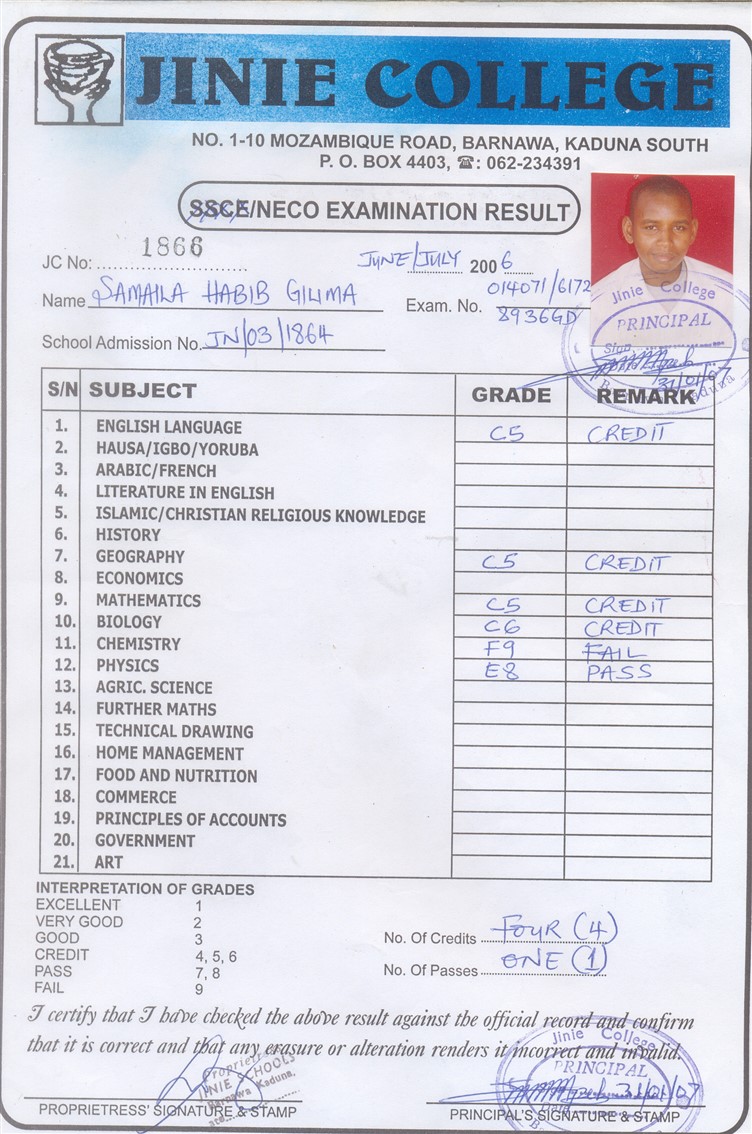 JINIE COLLEGE
NO. 1-10 MOZAMBIQUE ROAD, BARNAWA, KADUNA SOUTH
P. O. BOX 4403, ☎: 062-234391
SSCE/NECO EXAMINATION RESULT
JC No: 1866
JUNE/JULY 2006
Name SAMAILA HABIB GILIMA
Exam. No. 014071/6172
8936GD
School Admission No. JN/03/1864
Jinie College
PRINCIPAL
Sign
31/01/07
S/N SUBJECT GRADE REMARK
1. ENGLISH LANGUAGE C5 CREDIT
2. HAUSA/IGBO/YORUBA
3. ARABIC/FRENCH
4. LITERATURE IN ENGLISH
5. ISLAMIC/CHRISTIAN RELIGIOUS KNOWLEDGE
6. HISTORY
7. GEOGRAPHY C5 CREDIT
8. ECONOMICS
9. MATHEMATICS C5 CREDIT
10. BIOLOGY C6 CREDIT
11. CHEMISTRY F9 FAIL
12. PHYSICS E8 PASS
13. AGRIC. SCIENCE
14. FURTHER MATHS
15. TECHNICAL DRAWING
16. HOME MANAGEMENT
17. FOOD AND NUTRITION
18. COMMERCE
19. PRINCIPLES OF ACCOUNTS
20. GOVERNMENT
21. ART
INTERPRETATION OF GRADES
EXCELLENT 1
VERY GOOD 2
GOOD 3
CREDIT 4, 5, 6
PASS 7, 8
FAIL 9
No. Of Credits FOUR (4)
No. Of Passes ONE (1)
I certify that I have checked the above result against the official record and confirm
that it is correct and that any erasure or alteration renders it incorrect and invalid.
Proprietress
JINIE SCHOOLS
Barnawa Kaduna.
Jinie College
PRINCIPAL
31/01/07
PROPRIETRESS' SIGNATURE & STAMP
PRINCIPAL'S SIGNATURE & STAMP